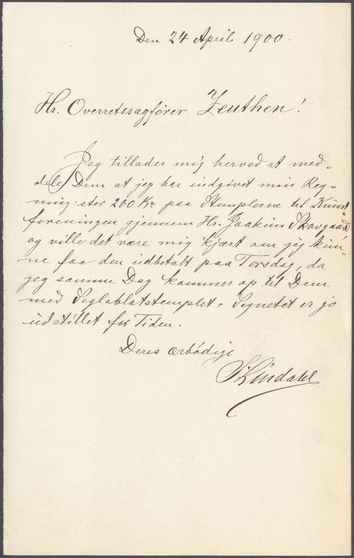 Den 24 April 1900.
Hr. Overretssagfører Zeuthen!
Jeg tillader mig herved at med-
dele Dem at jeg har indgivet min Reg-
ning stor 260 Kr. paa Stemplerne til Kunst
foreningen gjennem Hr. Joakim Skovgaard
og vilde det være mig kjært om jeg kun-
ne faa den udbetalt paa Torsdag, da
jeg samme Dag kommer op til Dem
med Seglablatstemplet. Signetet er jo
udstillet for Tiden.
Deres ærbødige
S Lindahl